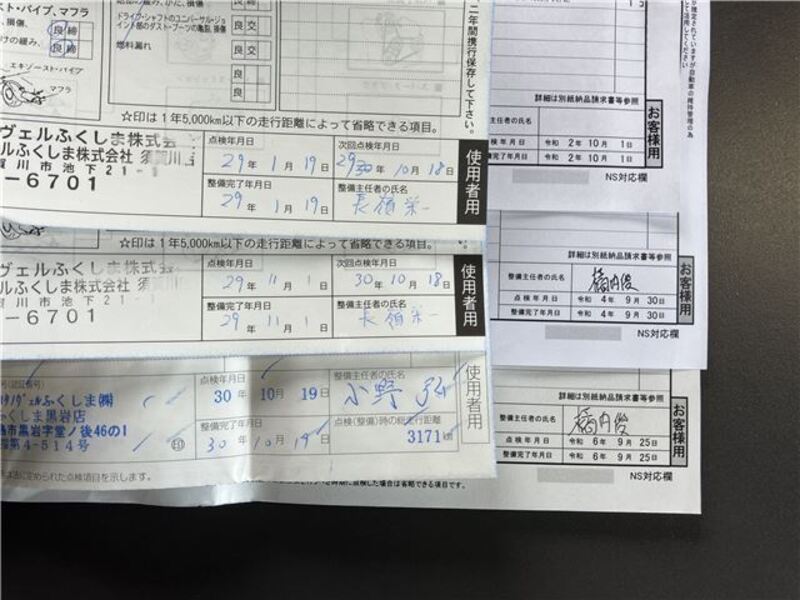 スト・パイプ、マフラ
損傷
良 締
けの緩み、
良 締
エキゾースト・パイプ
マフラ
ドライブ・シャフトのユニバーサル・ジョイント部のダスト・ブーツの亀裂、損傷
良 交
燃料漏れ
良 交
良
良
二年間携行保存して下さい。
☆印は1年5,000km以下の走行距離によって省略できる項目。
ヴェルふくしま株式会
ルふくしま株式会社 須賀川
賀川市池下21-1
-6701
点検年月日
29年 1月 19日
次回点検年月日
30年 10月 18日
整備完了年月日
29年 1月 19日
整備主任者の氏名
長嶺栄一
使用者用
☆印は1年5,000km以下の走行距離によって省略できる項目。
ヴェルふくしま株式会
ルふくしま株式会社 須賀
賀川市池下21-1
-6701
点検年月日
29年 11月 1日
次回点検年月日
30年 10月 18日
整備完了年月日
29年 11月 1日
整備主任者の氏名
長嶺栄一
使用者用
ヴェルふくしま(株)
ふくしま黒岩店
島市黒岩字堂ノ後46の1
第4-514号
印
点検年月日
30年 10月 19日
整備主任者の氏名
整備完了年月日
30年 10月 19日
点検(整備)時の総走行距離
3171km
使用者用
に定められた点検項目を示します。
詳細は別紙納品請求書等参照
主任者の氏名
検年月日 令和 2年 10月 1日
完了年月日 令和 2年 10月 1日
お客様用
NS対応欄
詳細は別紙納品請求書等参照
整備主任者の氏名
点検年月日 令和 4年 9月 30日
整備完了年月日 令和 4年 9月 30日
お客様用
NS対応欄
詳細は別紙納品請求書等参照
整備主任者の氏名
点検年月日 令和 6年 9月 25日
整備完了年月日 令和 6年 9月 25日
お客様用
NS対応欄